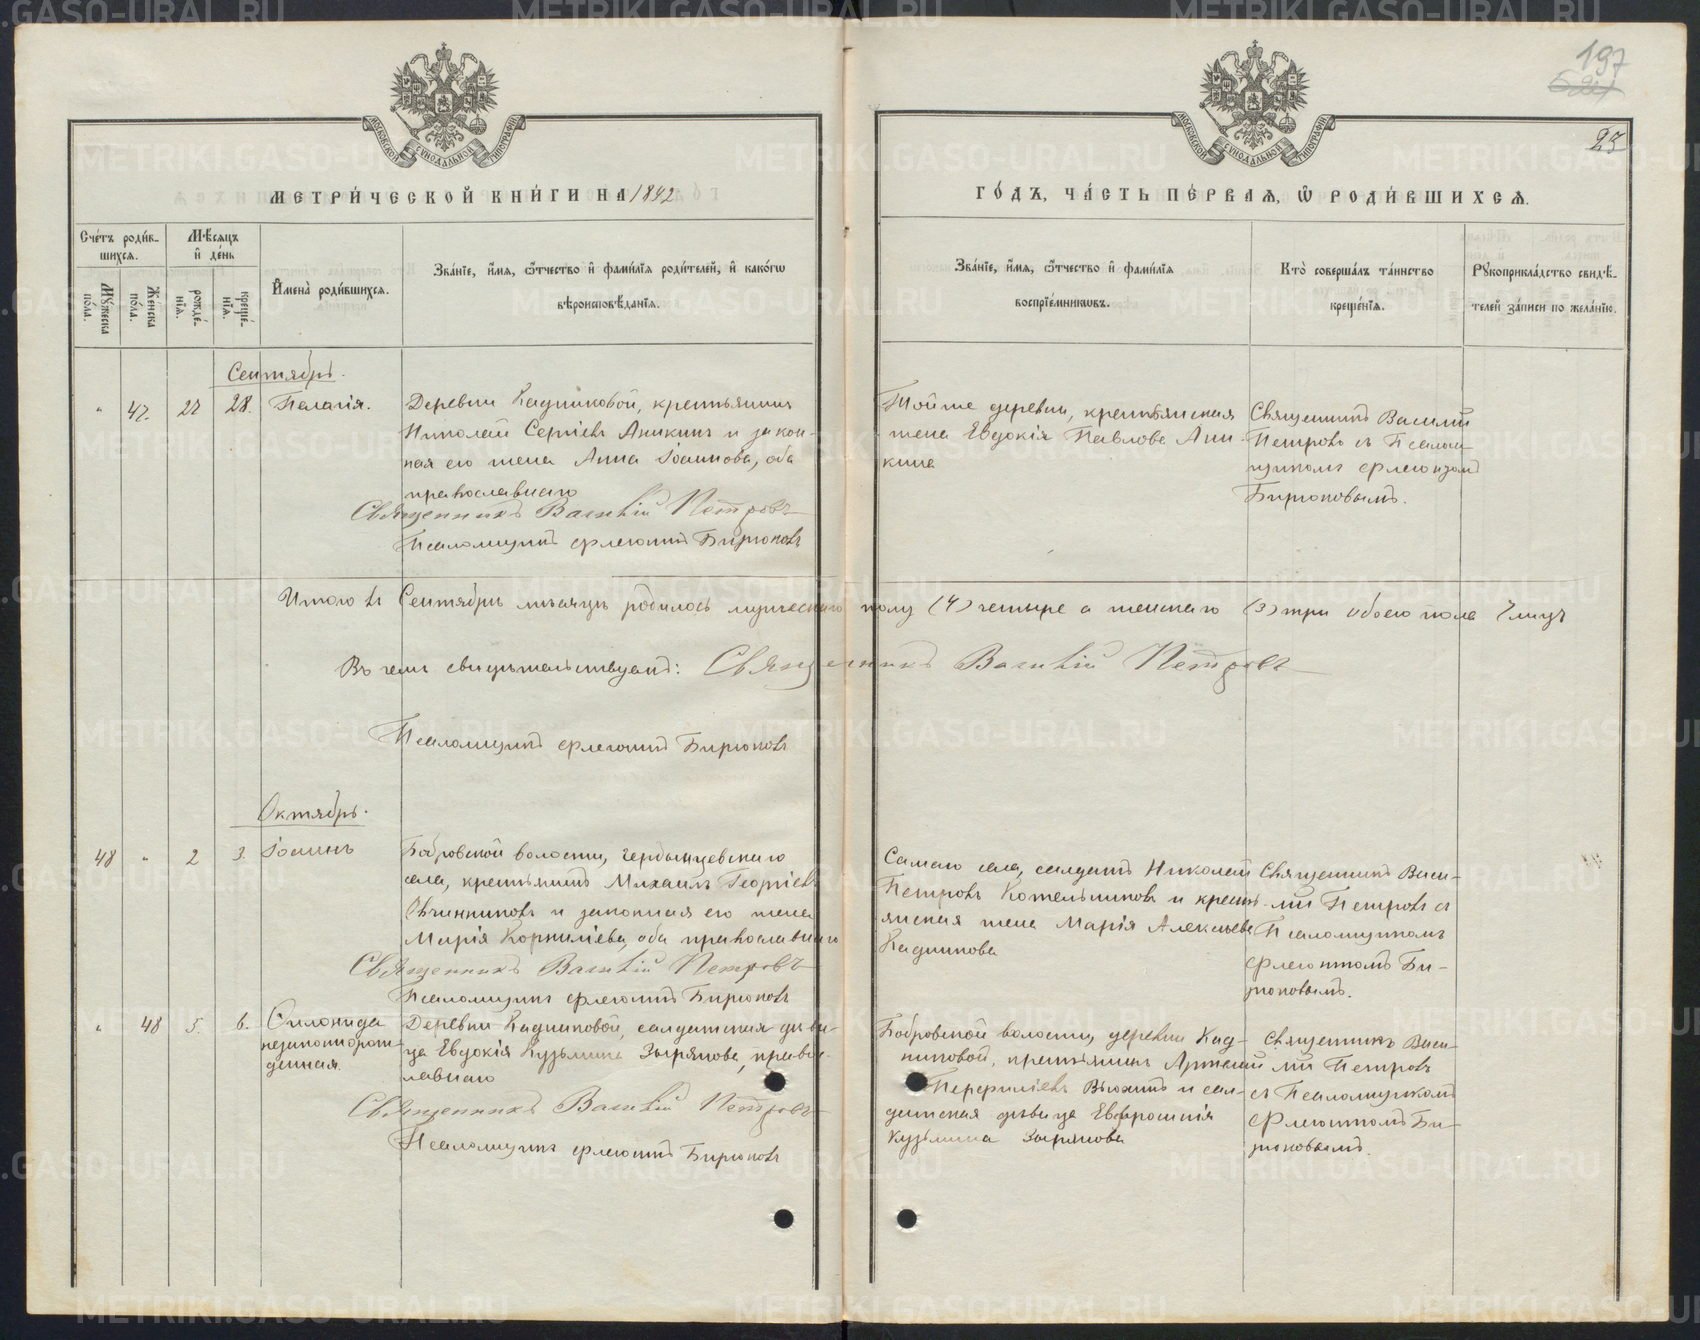 197
25
МОСКОВСКОЙ СѴНОДАЛЬНОЙ ТИПОГРАФІИ
МОСКОВСКОЙ СѴНОДАЛЬНОЙ ТИПОГРАФІИ
МЕТРИ́ЧЕСКОЙ КНИ́ГИ НА 1892
ГО́ДЪ, ЧА́СТЬ ПЕ́РВАѦ, Ѡ҆ РОДИ́ВШИХСѦ.
Сче́тъ роди́в-
шихсѧ.
Мꙋ́жеска по́ла.
Же́нска по́ла.
Мѣ́сѧцъ
и҆ де́нь
рожде́нїѧ.
креще́нїѧ.
И҆мена̀ роди́вшихсѧ.
Зва́нїе, и҆́мѧ, ѻ҆́тчество и҆ фами́лїѧ роди́телей, и҆ како́гѡ
вѣроисповѣ́данїѧ.
Зва́нїе, и҆́мѧ, ѻ҆́тчество и҆ фами́лїѧ
воспрїе́мникѡвъ.
Кто̀ соверша́лъ та́инство
креще́нїѧ.
Рꙋкоприкла́дство свидѣ́-
телей за́писи по жела́нїю.
Сентябрь.
" 47. 27 28. Пелагія.
Деревни Кадниковой, крестьянинъ
Николай Сергіевъ Аникинъ и закон-
ная его жена Анна Іоаннова, оба
православнаго
Священникъ Василій Петровъ
Псаломщикъ Флегонтъ Бирюковъ
Той же деревни, крестьянская
жена Евдокія Павлова Ани-
кина
Священникъ Василій
Петровъ съ Псалом-
щикомъ Флегонтомъ
Бирюковымъ.
Итого въ Сентябрѣ мѣсяцѣ родилось мужескаго полу (4) четыре а женскаго (3) три обоего пола 7 лицъ
Въ чемъ свидѣтельствуютъ: Священникъ Василій Петровъ
Псаломщикъ Флегонтъ Бирюковъ
Октябрь.
48 " 2 3. Іоаннъ
Бобровской волости, Чердынцевскаго
села, крестьянинъ Михаилъ Георгіевъ
Овчинниковъ и законная его жена
Марія Корниліева, оба православнаго
Священникъ Василій Петровъ
Псаломщикъ Флегонтъ Бирюковъ
Самаго села, солдатъ Николай
Петровъ Котельниковъ и кресть-
янская жена Марія Алексѣева
Кадникова
Священникъ Васи-
лій Петровъ съ
Псаломщикомъ
Флегонтомъ Би-
рюковымъ.
" 48 5. 6. Филонида
незаконорож-
денная.
Деревни Кадниковой, солдатская дѣви-
ца Евдокія Кузьмина Зырянова, право-
славнаго
Священникъ Василій Петровъ
Псаломщикъ Флегонтъ Бирюковъ
Бобровской волости, деревни Кад-
никовой, крестьянинъ
Перфиліевъ и сол-
датская дѣвица Евфросинія
Кузьмина Зырянова
Священникъ Васи-
лій Петровъ
съ Псаломщикомъ
Флегонтомъ Би-
рюковымъ.
METRIKI.GASO-URAL.RU